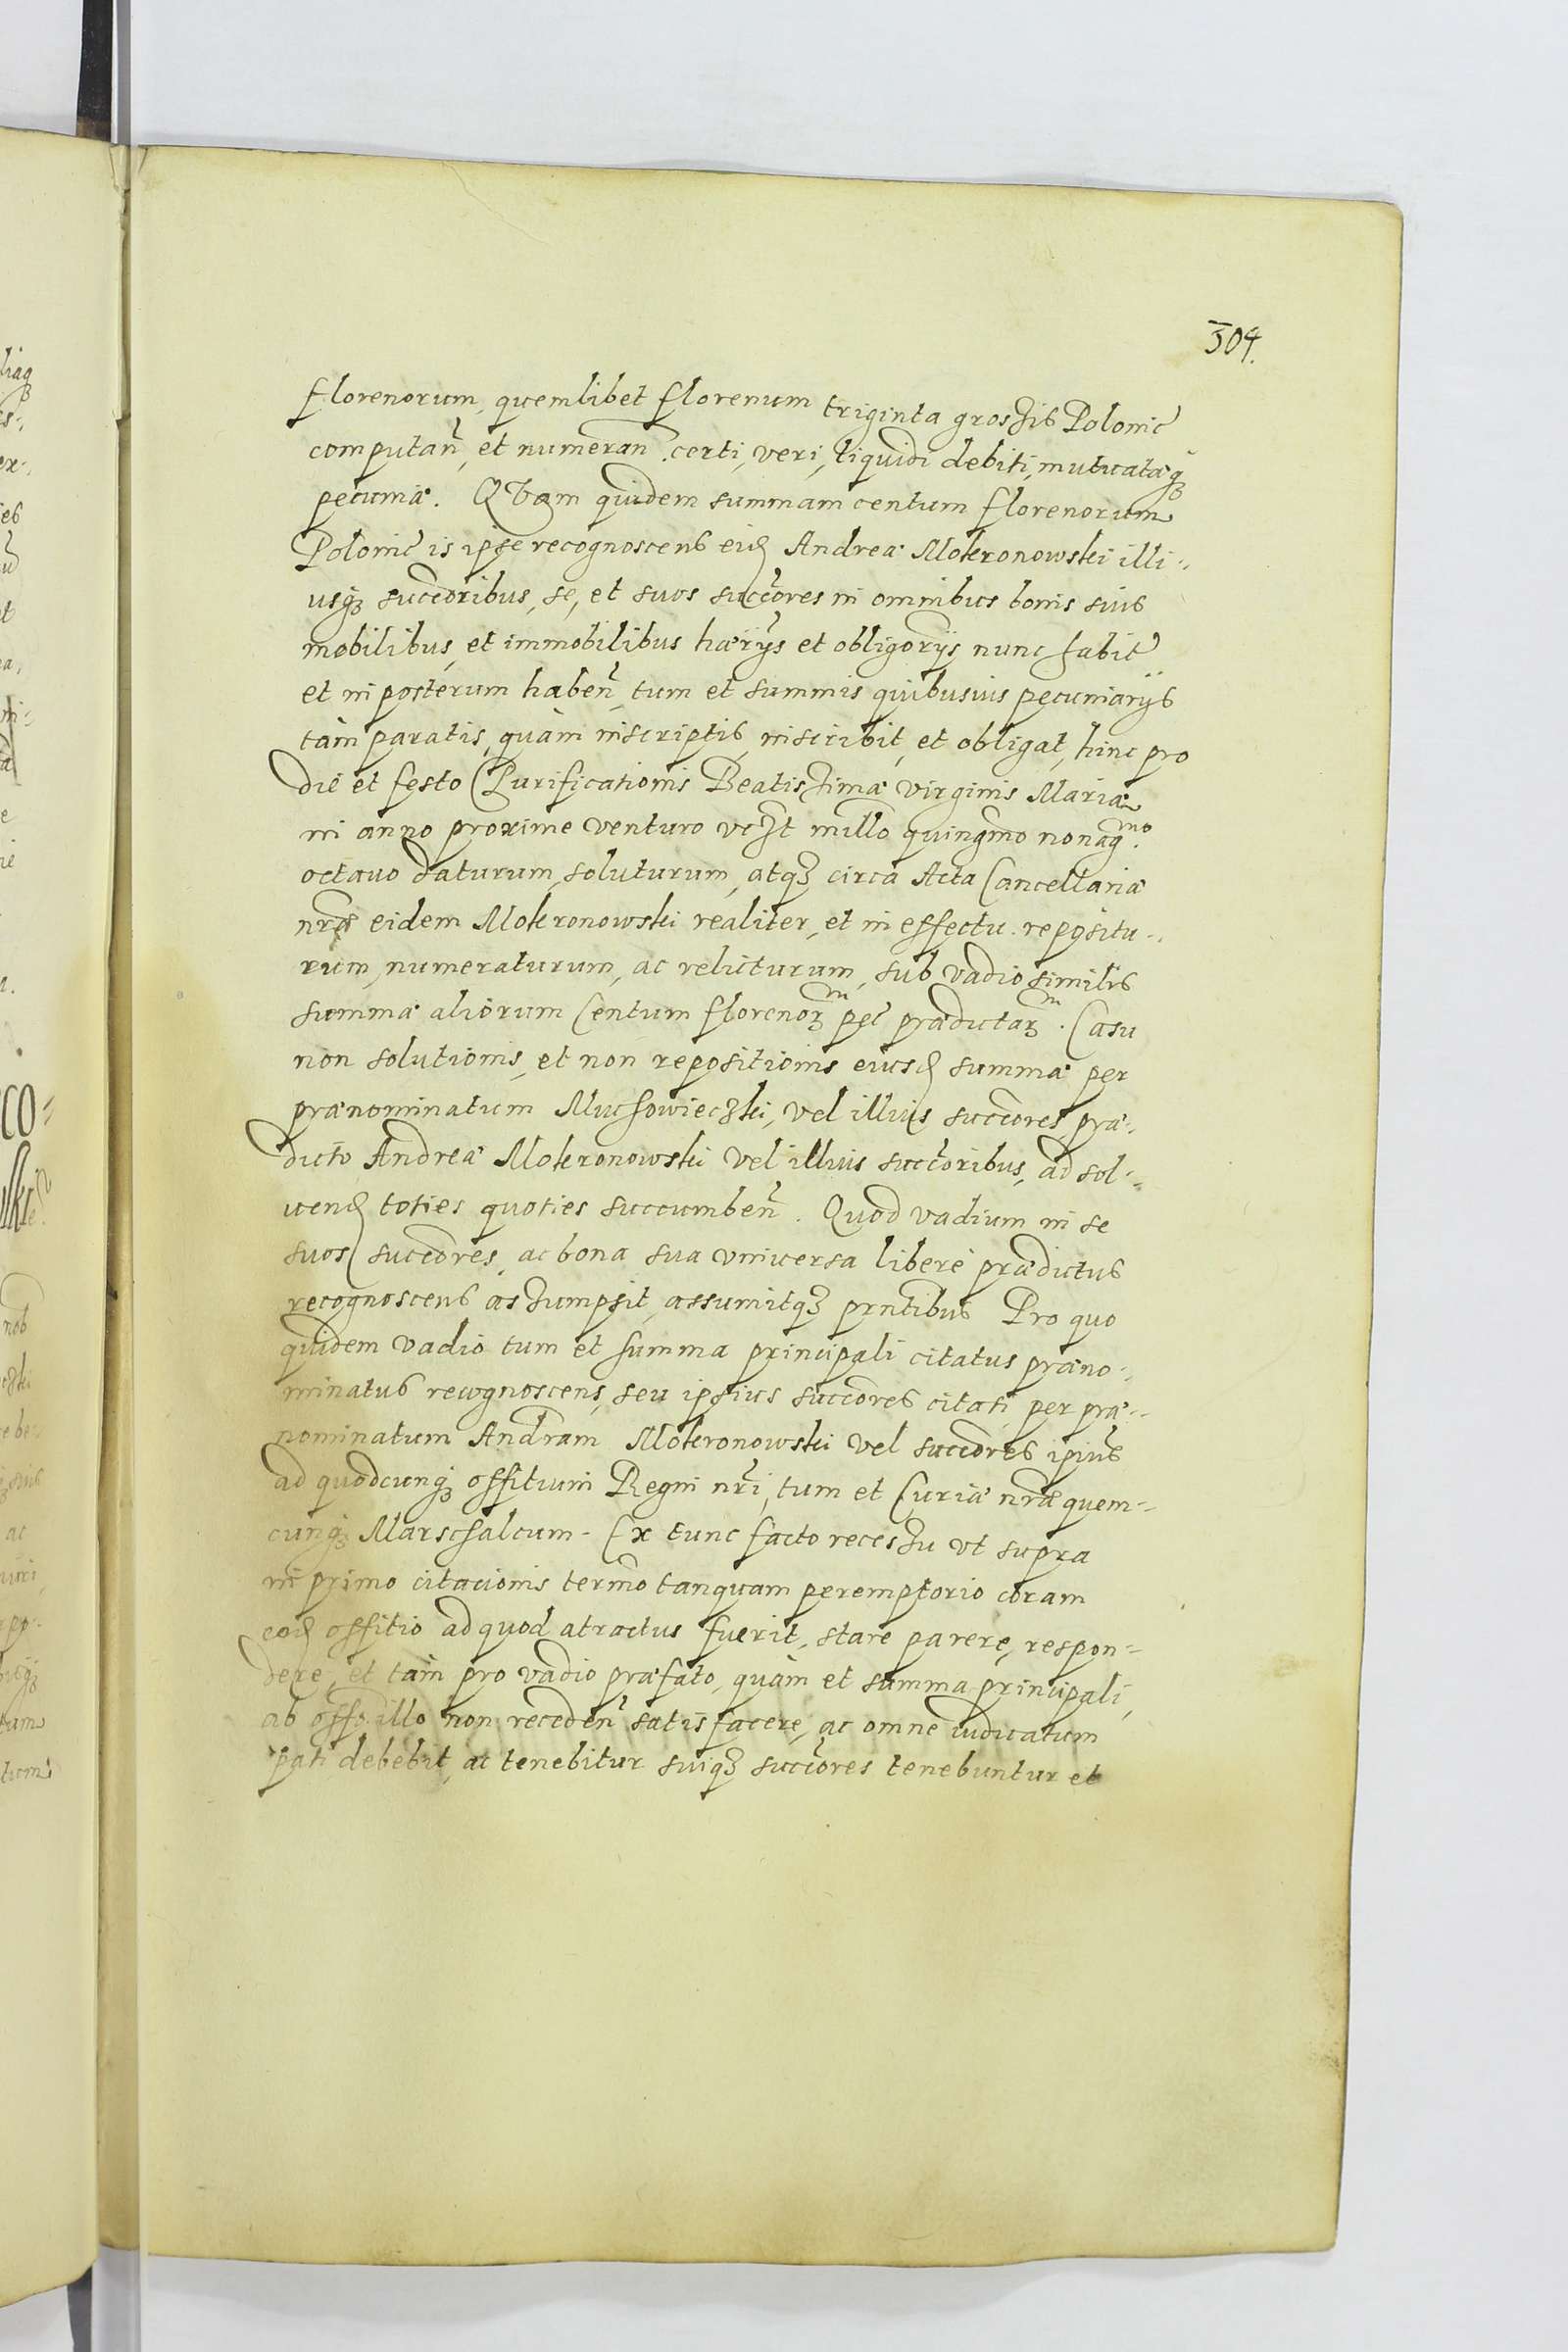 304.
florenorum, quemlibet florenum triginta grossis Polonic̃
computan̄, et numeran̄. certi, veri, liquidi debiti, mutuatæq̨
pecuniæ. QVam quidem summam centum florenorum
Polonic̃ is ipse recognoscens eid̨ Andreæ Mokronowski illi-
usq̨ succ̄oribus, se, et suos succ̄ores in omnibus bonis suis
mobilibus, et immobilibus hær̄ijs et obligor̄ijs nunc habit̃
et in posterum haben̄, tum et summis quibusuis pecuniarijs
tàm paratis, quàm inscriptis, inscribit, et obligat, hinc pro
die et festo Purificationis Beatissimæ Virginis Mariæ
in anno proxime venturo vc̃zt mill̄o quingm̄o nonag̃.mo
octauo daturum, soluturum, atq̨ circa Acta Cancellariæ
nr̄æ eidem Mokronowski realiter, et in effectu. repositu-
rum, numeraturum, ac relicturum, sub vadio similis
summæ aliorum Centum florenor̨m pec̃ prædictar̨m. Casu
non solutionis, et non repositionis eiusd̨ summæ per
prænominatum Muchowieczki, vel illius succ̄ores præ-
dicto Andreæ Mokronowski vel illius succ̄oribus, ad sol-
uend̨ toties quoties succumben̄. Quod vadium in se
suos succ̄ores, ac bona sua vniuersa liberè prædictus
recognoscens assumpsit, assumitq̨ prn̄tibus Pro quo
quidem vadio tum et summa principali citatus præno-
minatus recognoscens, seu ipsius succ̄ores citati per præ-
nominatum Andr̄am Mokronowski vel succ̄ores ipius̄
ad quodcunq̨ offitium Regni nr̄i, tum et Curiæ nr̄æ quem-
cunq̨ Marschalcum- Ex tunc facto recessu vt supra
in primo citacionis term̄o tanquam peremptorio coram
eod̨ offitio ad quod atractus fuerit, stare parere, respon-
dere, et tàm pro vadio præfato, quàm et summa principali,
ab off̄o illo non receden̄ satisfacere, ac omne iudicatum
pati debebit, ac tenebitur suiq̨ succ̄ores tenebuntur et